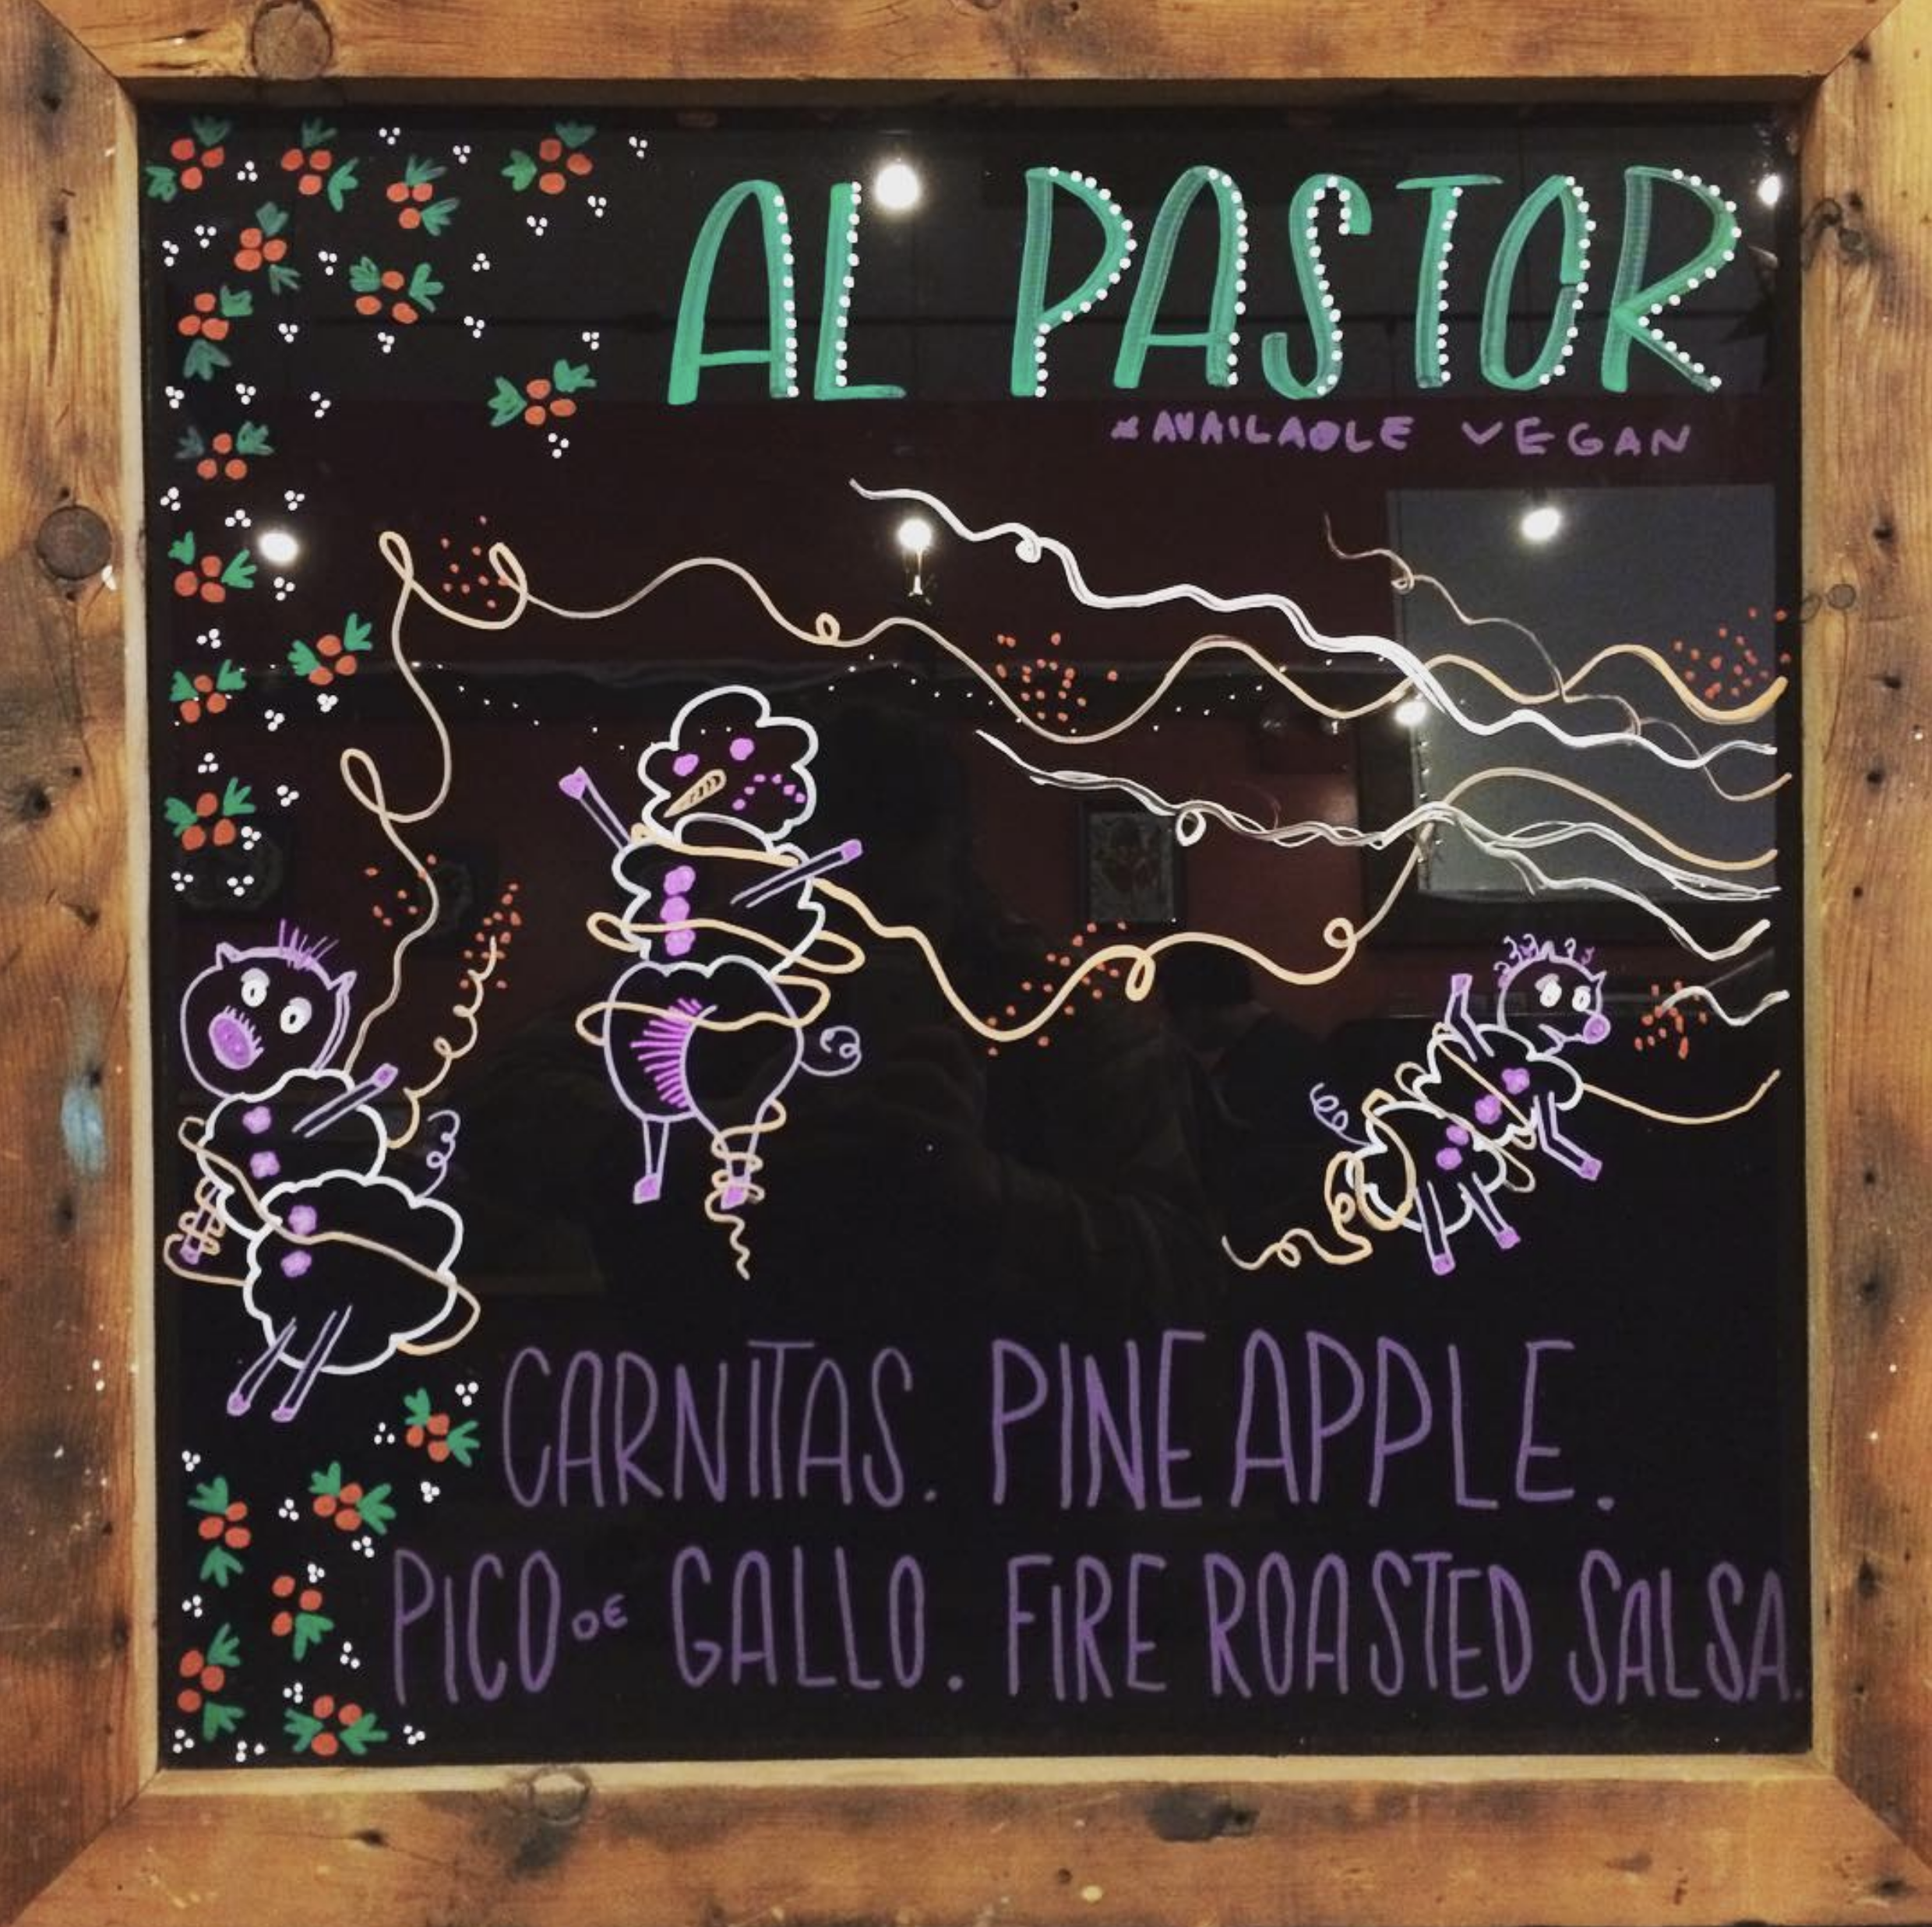 AL PASTOR
*AVAILABLE VEGAN
CARNITAS. PINEAPPLE.
PICO DE GALLO. FIRE ROASTED SALSA.